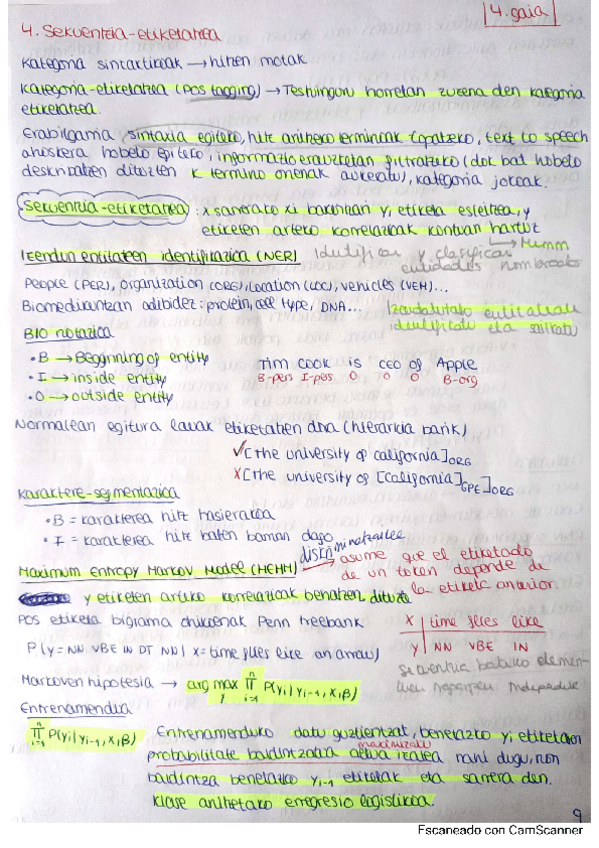 4. gaia
4. Sekuentzia-etiketatzea
Kategoria sintaktikoak → hitzen motak
Kategoria-etiketatzea (POS tagging) → Testuinguru horretan zuzena den kategoria
etiketatzea.
Erabilgarria sintaxia egiteko, hitz anitzeko terminoak topatzeko, text to speech
ahoskera hobeto egiteko, informazio erauzketan filtratzeko (dok bat hobeto
deskribatzen dituzten K termino onenak aukeratu), kategoria jokoak.
Sekuentzia-etiketatzea : x sarrerako xi bakoitzean yi etiketa esleitzea, y
etiketen arteko korrelazioak kontuan hartuz
→ Memm
Izendun entitateen identifikazioa (NER) Identificar y clasificar
entidades nombradas
People (PER), organization (ORG), Location (LOC), vehicles (VEH)...
Biomedikuntzan adibidez: protein, cell type, DNA...
entitateak
identifikatu eta sailkatu
BIO notazioa
• B → Beginning of entity
• I → inside entity
• O → outside entity
Tim Cook is CEO of Apple
B-pers I-pers O O O B-org
Normalean egitura lauak etiketatzen dira (hierarkia barik)
✓ [the university of california]ORG
X [the university of [california]GPE]ORG
Karaktere-segmentazioa
• B = karakterea hitz hasieratzea
• I = karakterea hitz baten barnean dago
Maximum Entropy Markov Model (MEMM) → asume que el etiketado
de un token depende de
la etiketa anterior.
y etiketen arteko korrelazioak behatzen dituzte
POS etiketa bigrama ohikoenak Penn treebank
P(y = NN VBE IN DT NN | x = time flies like an arrow)
X | time flies like
y | NN VBE IN
Markoven hipotesia → arg max y ∏ i=1 n P(yi | yi-1, x, β)
Entrenamendua
∏ i=1 n P(yi | yi-1, x, β)
Entrenamenduko datu guztientzat, benetazko yi etiketaren
maximizatu
probabilitate baldintzatua ahalik izatea nahi dugu, non
baldintza benetazko yi-1 etiketak eta sarrera den.
Klase anitzetako erregresio logistikoa.
9
Escaneado con CamScanner